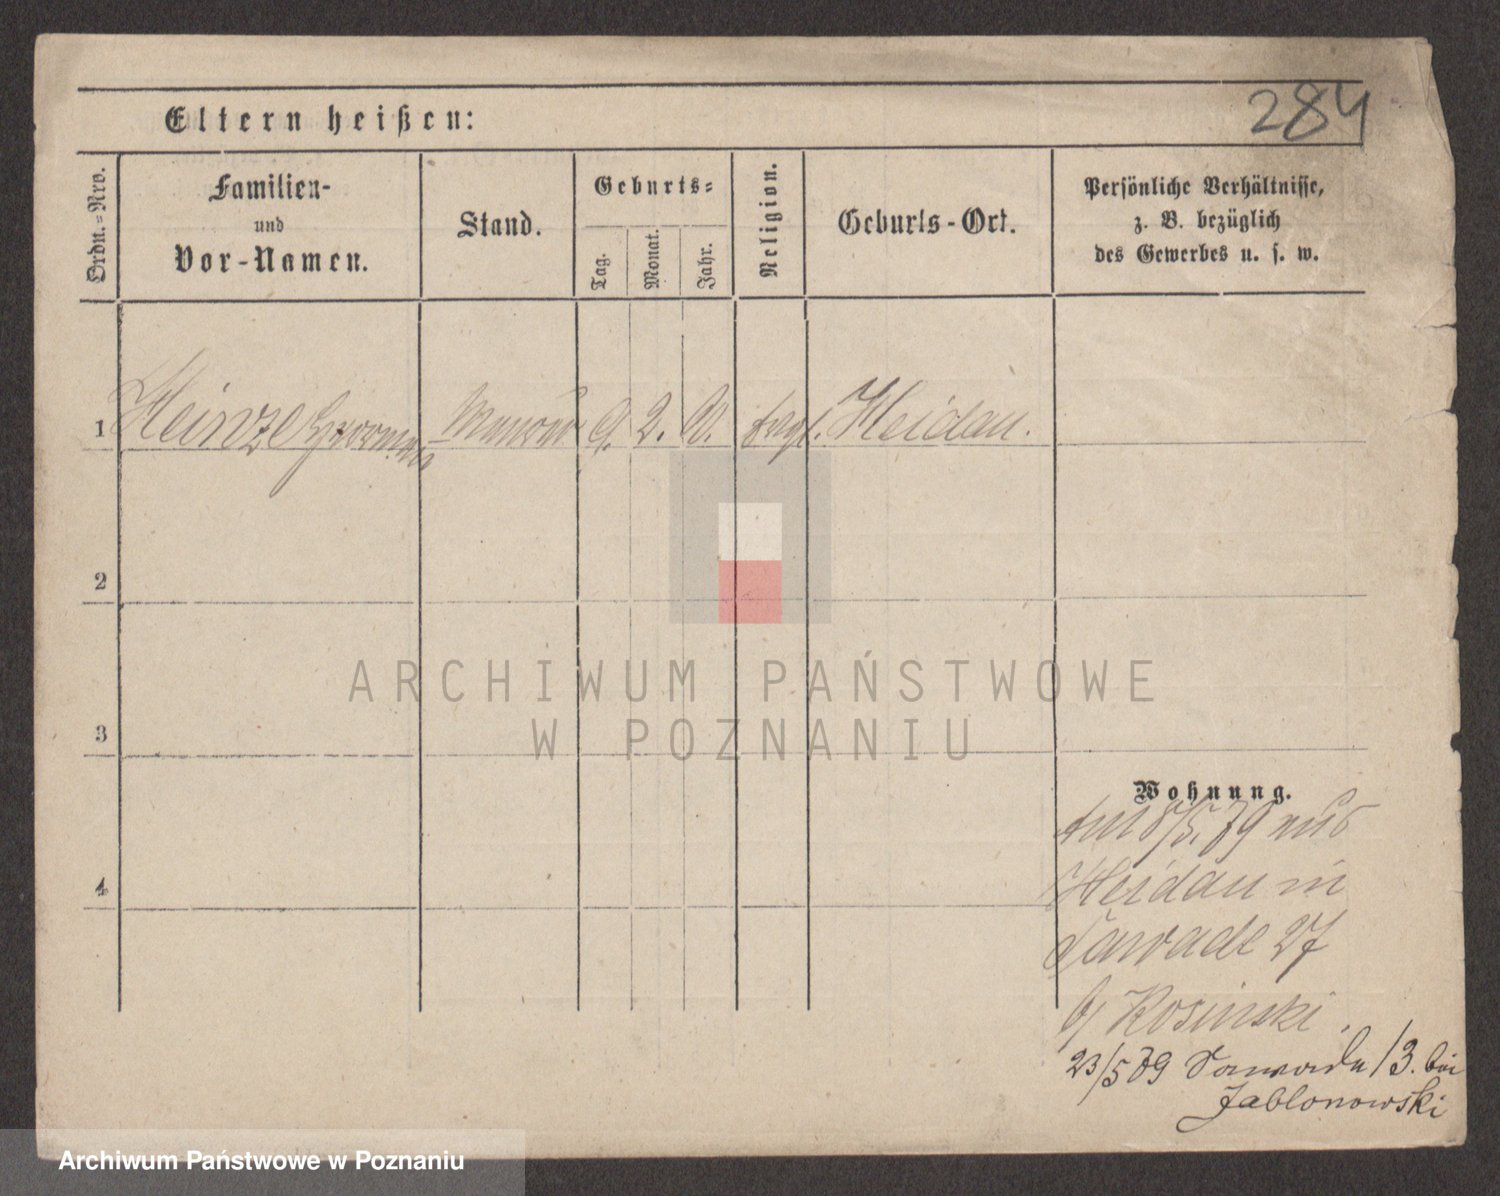 284
Eltern heißen:
Ordn.-Nro.
Familien-
und
Vor-Namen.
Stand.
Geburts-
Tag.
Monat.
Jahr.
Religion.
Geburts-Ort.
Persönliche Verhältnisse,
z. B. bezüglich
des Gewerbes u. s. w.
1 Heinze Hermann 9. 2. Heidau.
2
3
4
ARCHIWUM PAŃSTWOWE
W POZNANIU
Wohnung.
8/5. 79 aus
Heidau in
27
b/ Kosinski.
23/5 79 /3. bei
Jablonowski
Archiwum Państwowe w Poznaniu